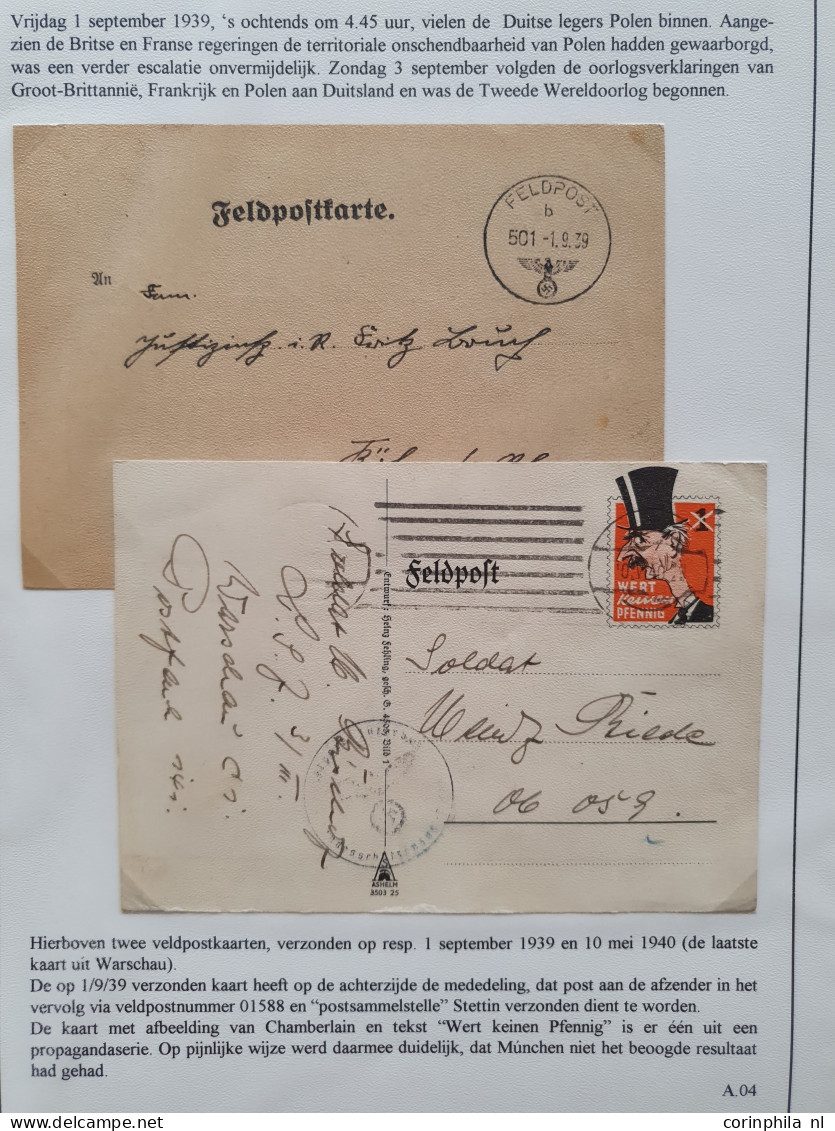 Vrijdag 1 september 1939, ‘s ochtends om 4.45 uur, vielen de Duitse legers Polen binnen. Aange-
zien de Britse en Franse regeringen de territoriale onschendbaarheid van Polen hadden gewaarborgd,
was een verder escalatie onvermijdelijk. Zondag 3 september volgden de oorlogsverklaringen van
Groot-Brittannië, Frankrijk en Polen aan Duitsland en was de Tweede Wereldoorlog begonnen.
Feldpostkarte.
FELDPOST
b
501 -1.9.39
An
Fam.
i. R. Fritz Bruch
WERT
keinen
PFENNIG
1
Feldpost
Entwurf: Heinz Fehling, gesch. G. 4503, Bild 1
Soldat
Heinz Riede
06 059.
Warschau C1.
Postfach 141.
ASHELM
3503 25
Hierboven twee veldpostkaarten, verzonden op resp. 1 september 1939 en 10 mei 1940 (de laatste
kaart uit Warschau).
De op 1/9/39 verzonden kaart heeft op de achterzijde de mededeling, dat post aan de afzender in het
vervolg via veldpostnummer 01588 en “postsammelstelle” Stettin verzonden dient te worden.
De kaart met afbeelding van Chamberlain en tekst “Wert keinen Pfennig” is er één uit een
propagandaserie. Op pijnlijke wijze werd daarmee duidelijk, dat Múnchen niet het beoogde resultaat
had gehad.
A.04
corinphila nl